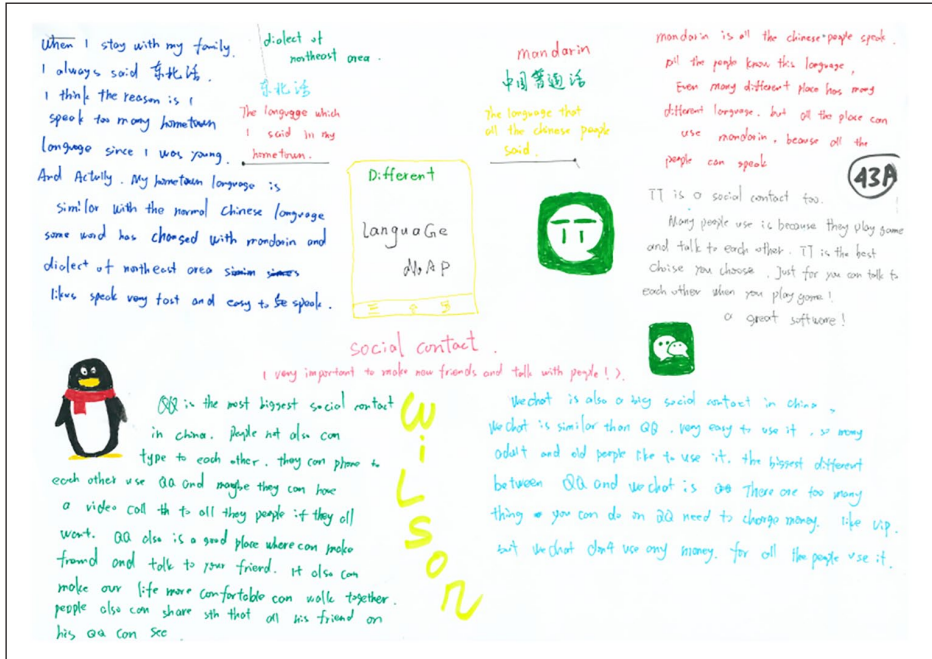 When I stay with my family.
I always said 东北话.
I think the reason is I
speak too many hometown
language since I was young.
And Actully. My hometown language is
similor with the normal Chinese language
some word has changed with mandarin and
dialect of northeast area
likes speak very fast and easy to speak.
dialect of
northeast area.
东北话
The language which
I said in my
hometown.
mandarin
中国普通话
The language that
all the chinese people
said.
mandarin is all the chinese people speak.
All the people know this language,
Even many different place has many
different language. but all the place can
use mandarin, becaus all the
people can speak
43A
Different
LanguaGe
MAP
TT is a social contact too.
Many people use is because they play game
and talk to each other. TT is the best
choise you choose. Just for you can talk to
each other when you play game!
a great software!
social contact.
( very important to make new friends and talk with people! ).
QQ is the most biggest social contact
in china. people not also can
type to each other. they can phone to
each other use QQ and maybe they can have
a video call th to all they people if they all
want. QQ also is a good place where can make
friend and talk to your friend. it also can
make our life more comfortable can walk together.
people also can share sth that all his friend on
his QQ can see
WiLson
Wechat is also a big social contact in china,
Wechat is similar than QQ. very easy to use it, so many
adult and old people like to use it. the biggest different
between QQ and wechat is There are too many
thing you can do on QQ need to charge money. like vip.
but wechat don't use any money. for all the people use it.